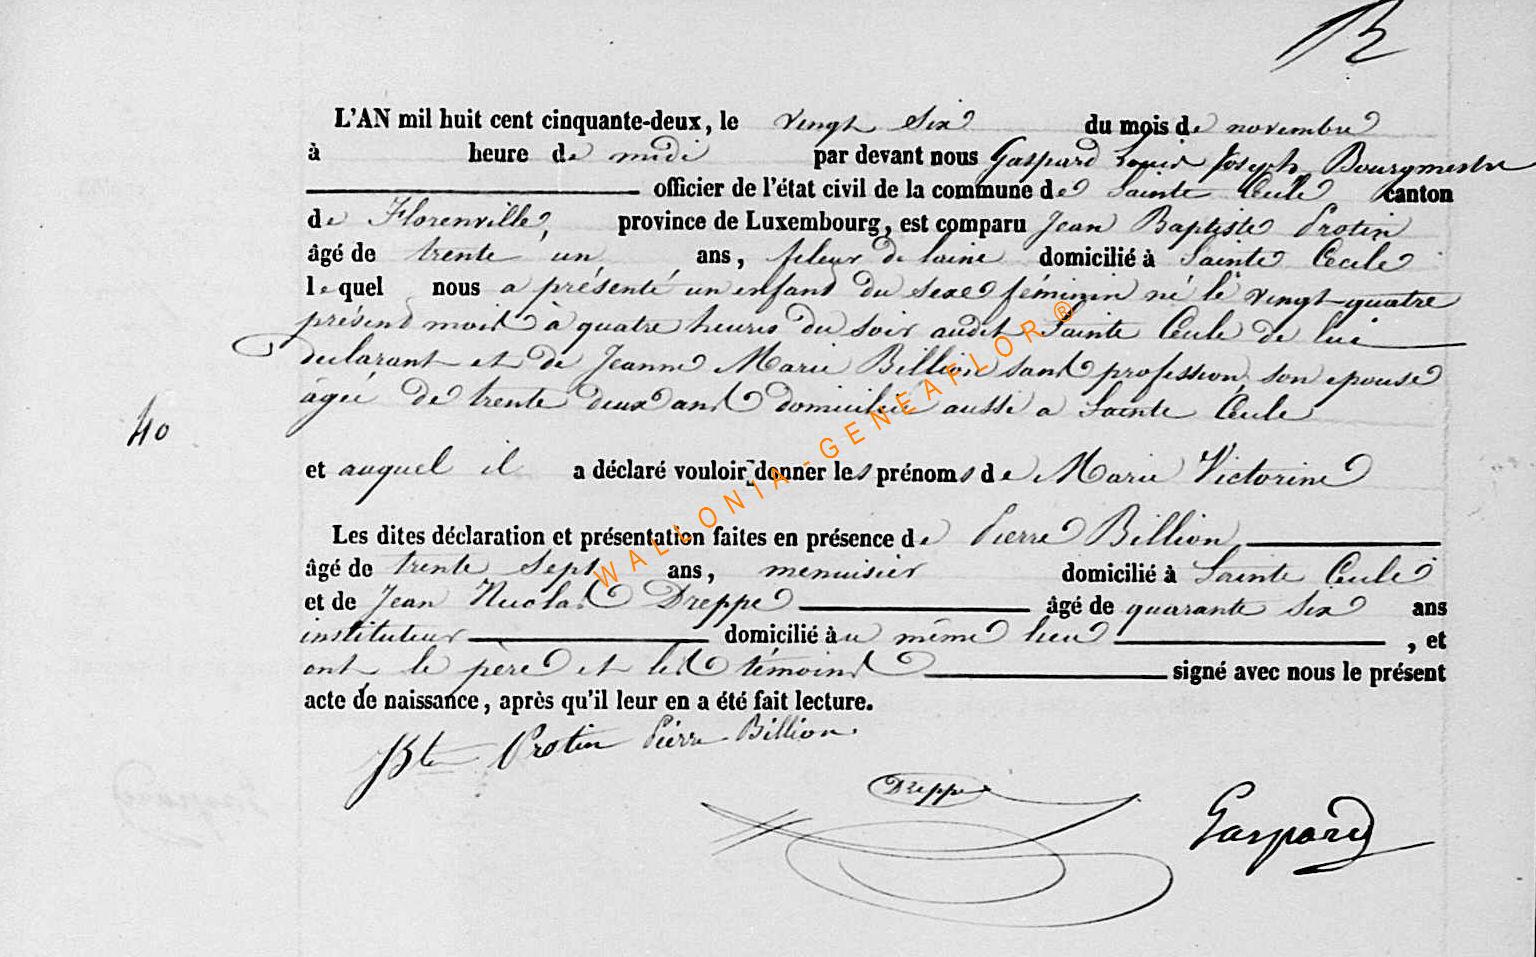 L'AN mil huit cent cinquante-deux, le vingt six du mois de novembre
à heure de midi par devant nous Gaspard Louis Joseph Bourgmestre
officier de l'état civil de la commune de Sainte Cécile canton
de Florenville, province de Luxembourg, est comparu Jean Baptiste Protin
âgé de trente un ans, fileur de laine domicilié à Sainte Cecile
lequel nous a présenté un enfant du sexe féminin né le vingt quatre
présend mois à quatre heures du soir audit Sainte Cecile de lui
declarant et de Jeanne Marie Billion sans profession son epouse
agée de trente deux ans domiciliée aussi a Sainte Cecile
40
et auquel il a déclaré vouloir donner les prénoms de Marie Victorine
Les dites déclaration et présentation faites en présence de Pierre Billion
âgé de trente sept ans, menuisier domicilié à Sainte Cecile
et de Jean Nicolas Dreppe âgé de quarante six ans
instituteur domicilié au même lieu, et
ont le père et les témoins signé avec nous le présent
acte de naissance, après qu'il leur en a été fait lecture.
JBte Protin Pierre Billion.
Dreppe
Gaspard
WALLONIA-GENEAFLOR®